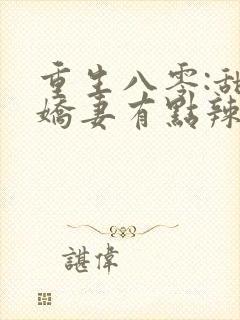 重生八零:甜
嬌妻有點辣
諶偉